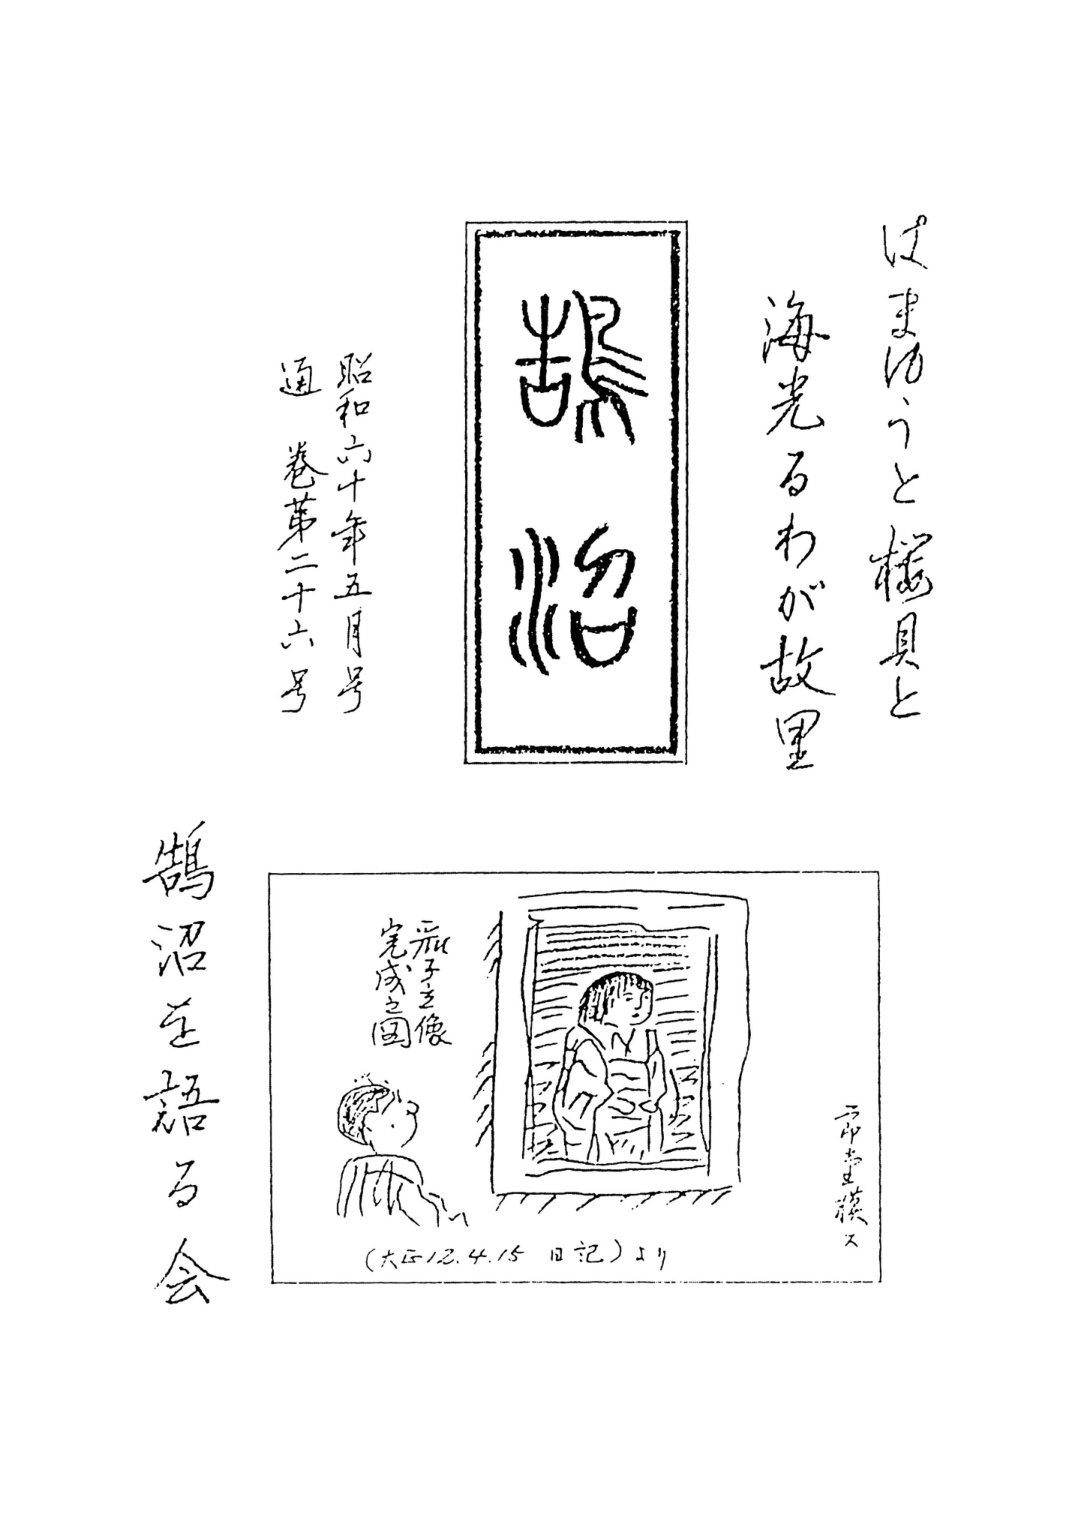 はまゆうと桜貝と
海光るわが故里
鵠沼
昭和六十年五月号
通巻第二十六号
鵠沼を語る会
麗子立像
完成之図
(大正12.4.15 日記)より